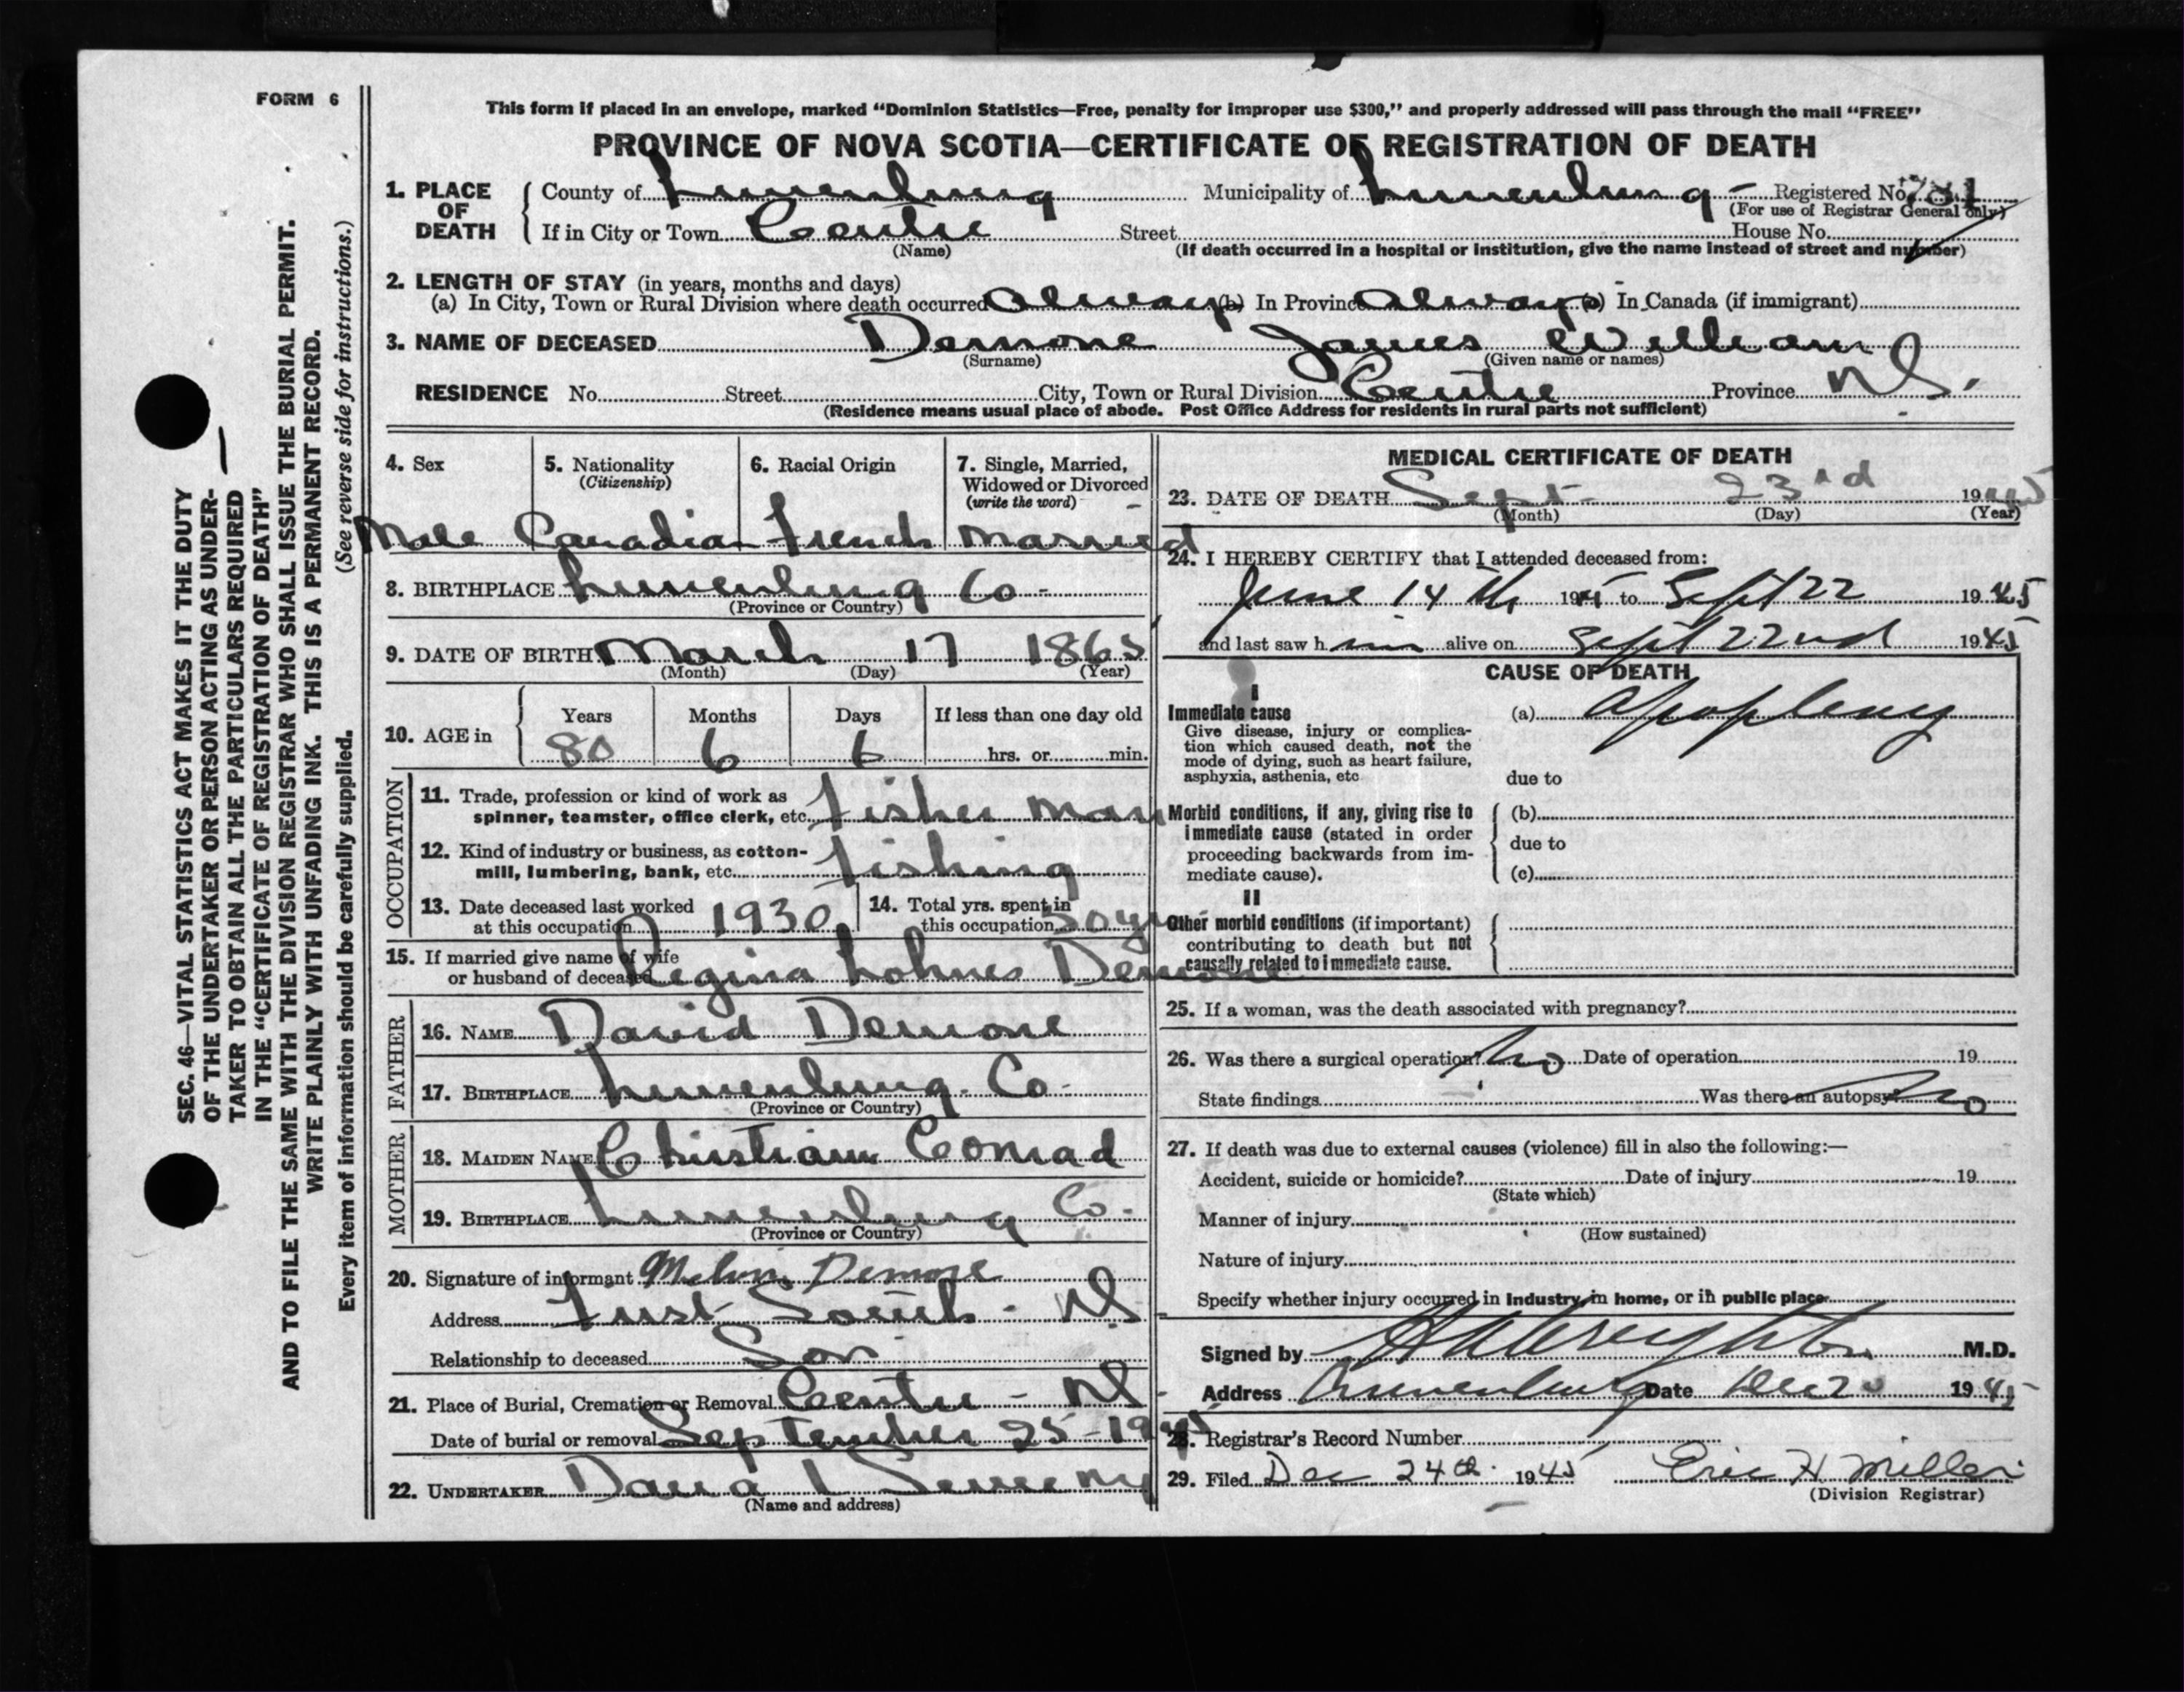 FORM 6
This form if placed in an envelope, marked “Dominion Statistics—Free, penalty for improper use $300,” and properly addressed will pass through the mail “FREE”
PROVINCE OF NOVA SCOTIA—CERTIFICATE OF REGISTRATION OF DEATH
1. PLACE OF DEATH
County of Lunenburg Municipality of Lunenburg Registered No.
(For use of Registrar General only)
If in City or Town Centre Street House No.
(Name) (If death occurred in a hospital or institution, give the name instead of street and number)
2. LENGTH OF STAY (in years, months and days)
(a) In City, Town or Rural Division where death occurred Always (b) In Province Always (c) In Canada (if immigrant)
3. NAME OF DECEASED Demone James William
(Surname) (Given name or names)
RESIDENCE No. Street City, Town or Rural Division Centre Province N.S.
(Residence means usual place of abode. Post Office Address for residents in rural parts not sufficient)
4. Sex
Male
5. Nationality
(Citizenship)
Canadian
6. Racial Origin
French
7. Single, Married,
Widowed or Divorced
(write the word)
Married
8. BIRTHPLACE Lunenburg Co -
(Province or Country)
9. DATE OF BIRTH March 17 1865
(Month) (Day) (Year)
10. AGE in
Years Months Days If less than one day old
80 6 6 hrs. or min.
OCCUPATION
11. Trade, profession or kind of work as
spinner, teamster, office clerk, etc. Fisher man
12. Kind of industry or business, as cotton-
mill, lumbering, bank, etc. Fishing
13. Date deceased last worked
at this occupation 1930
14. Total yrs. spent in
this occupation 50 yrs
15. If married give name of wife
or husband of deceased Regina Lohnes Demone
FATHER
16. NAME David Demone
17. BIRTHPLACE Lunenburg Co -
(Province or Country)
MOTHER
18. MAIDEN NAME Christiann Conrad
19. BIRTHPLACE Lunenburg Co -
(Province or Country)
20. Signature of informant Melvin Demone
Address First South - N.S
Relationship to deceased Son
21. Place of Burial, Cremation or Removal Centre - N.S -
Date of burial or removal September 25 - 1945
22. UNDERTAKER
(Name and address)
MEDICAL CERTIFICATE OF DEATH
23. DATE OF DEATH Sept - 23rd 1945
(Month) (Day) (Year)
24. I HEREBY CERTIFY that I attended deceased from:
June 14 th 1945 to Sept 22 1945
and last saw him alive on Sept 22nd 1945
CAUSE OF DEATH
I
Immediate cause (a) Apoplexy
Give disease, injury or complica-
tion which caused death, not the
mode of dying, such as heart failure,
asphyxia, asthenia, etc due to
Morbid conditions, if any, giving rise to (b)
immediate cause (stated in order
proceeding backwards from im- due to
mediate cause). (c)
II
Other morbid conditions (if important)
contributing to death but not
causally related to immediate cause.
25. If a woman, was the death associated with pregnancy?
26. Was there a surgical operation? No Date of operation 19
State findings Was there an autopsy? No
27. If death was due to external causes (violence) fill in also the following:—
Accident, suicide or homicide? Date of injury 19
(State which)
Manner of injury
(How sustained)
Nature of injury
Specify whether injury occurred in industry, in home, or in public place
Signed by M.D.
Address Lunenburg Date Dec 20 1945
28. Registrar's Record Number
29. Filed Dec 24th 1945 Eric H Miller
(Division Registrar)
SEC. 46—VITAL STATISTICS ACT MAKES IT THE DUTY
OF THE UNDERTAKER OR PERSON ACTING AS UNDER-
TAKER TO OBTAIN ALL THE PARTICULARS REQUIRED
IN THE “CERTIFICATE OF REGISTRATION OF DEATH”
AND TO FILE THE SAME WITH THE DIVISION REGISTRAR WHO SHALL ISSUE THE BURIAL PERMIT.
WRITE PLAINLY WITH UNFADING INK. THIS IS A PERMANENT RECORD.
Every item of information should be carefully supplied. (See reverse side for instructions.)